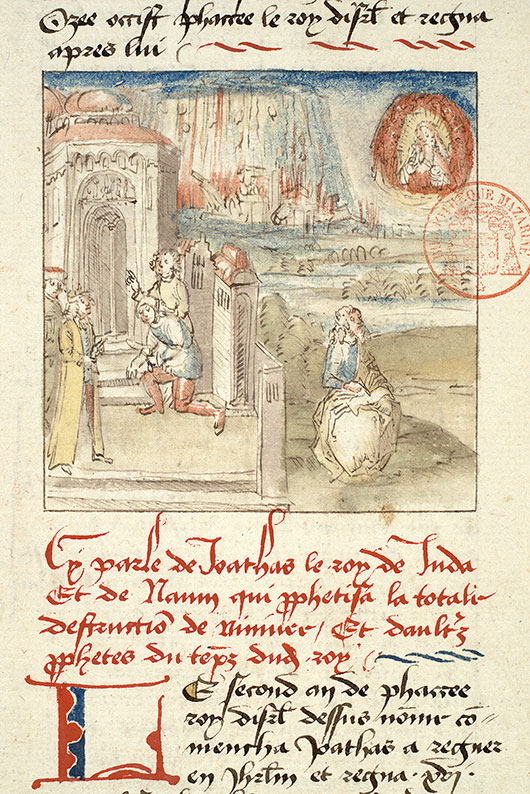 Ozee occist phacee le roy disrl et regna
apres lui
BLIOTHEQUE MAZARINE
Cy parle de Joathas le roy de Juda
Et de Naum qui prophetisa la totale
destructiō de Ninive / Et daultrz
prophetes du tēps dud. roy
LE second an de phacee
roy disrl dessus nōme cō=
mencha Joathas a regner
en Jhrlm et regna .xvi.